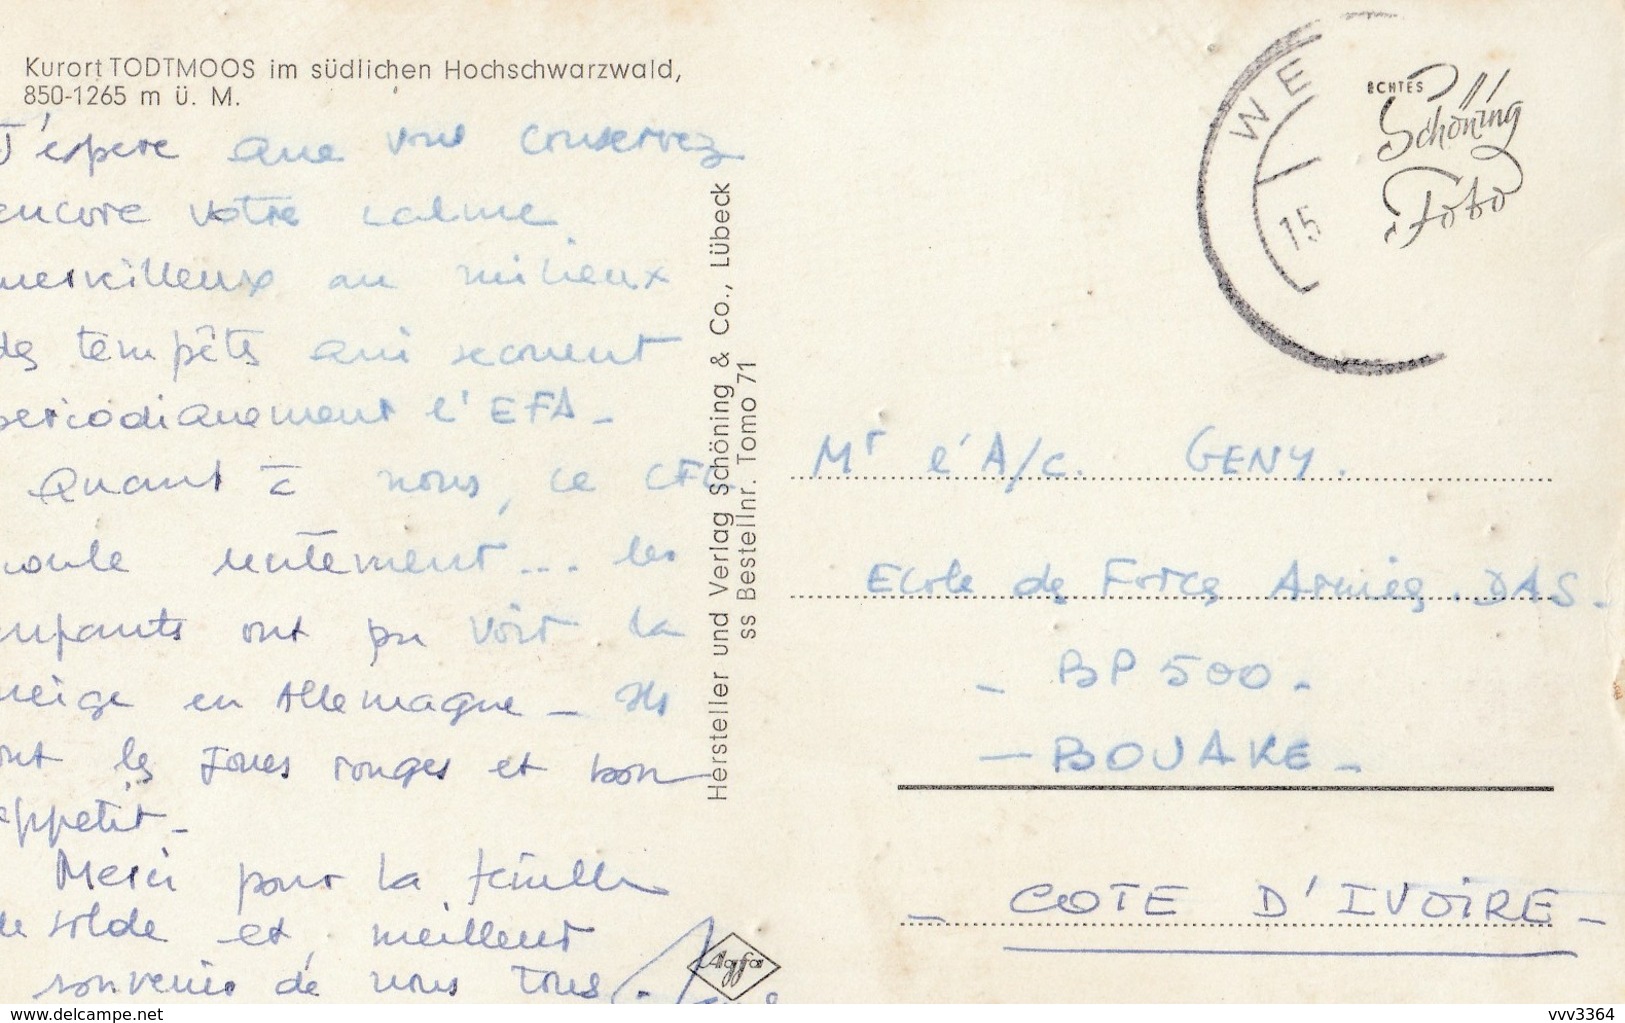 Kurort TODTMOOS im südlichen Hochschwarzwald,
850-1265 m ü. M.
J'espere que vous conservez
encore votre calme
merveilleux au milieux
des tempêtes qui secouent
periodiquement l'EFA -
Quant à nous, ce CFC
roule lentement... les
enfants ont pu voir la
neige en Allemagne - Ils
ont les joues rouges et bon
appetit -
Merci pour la feuille
de solde et meilleur
souvenir de nous tous.
Hersteller und Verlag Schöning & Co., Lübeck
ss Bestellnr. Tomo 71
Agfa
WE
15
ECHTES
Schöning
Foto
Mr l'A/c. GENY.
Ecole des Forces Armées. DAS -
- BP 500 -
- BOUAKE -
- COTE D'IVOIRE -
www.delcampe.net
vvv3364